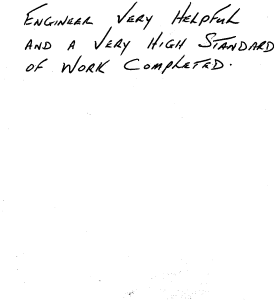 ENGINEER VERY HELPFUL
AND A VERY HIGH STANDARD
OF WORK COMPLETED.